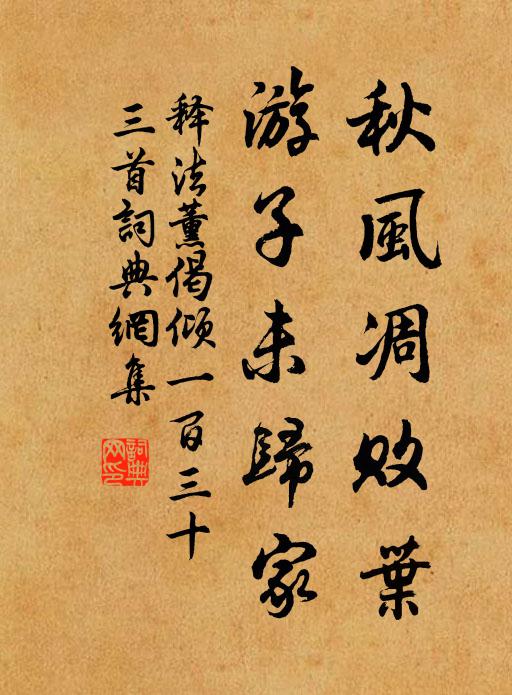 秋風凋敗葉
游子未歸家
释法薰偈倾一百三十
三首詞典網集
詞典網印